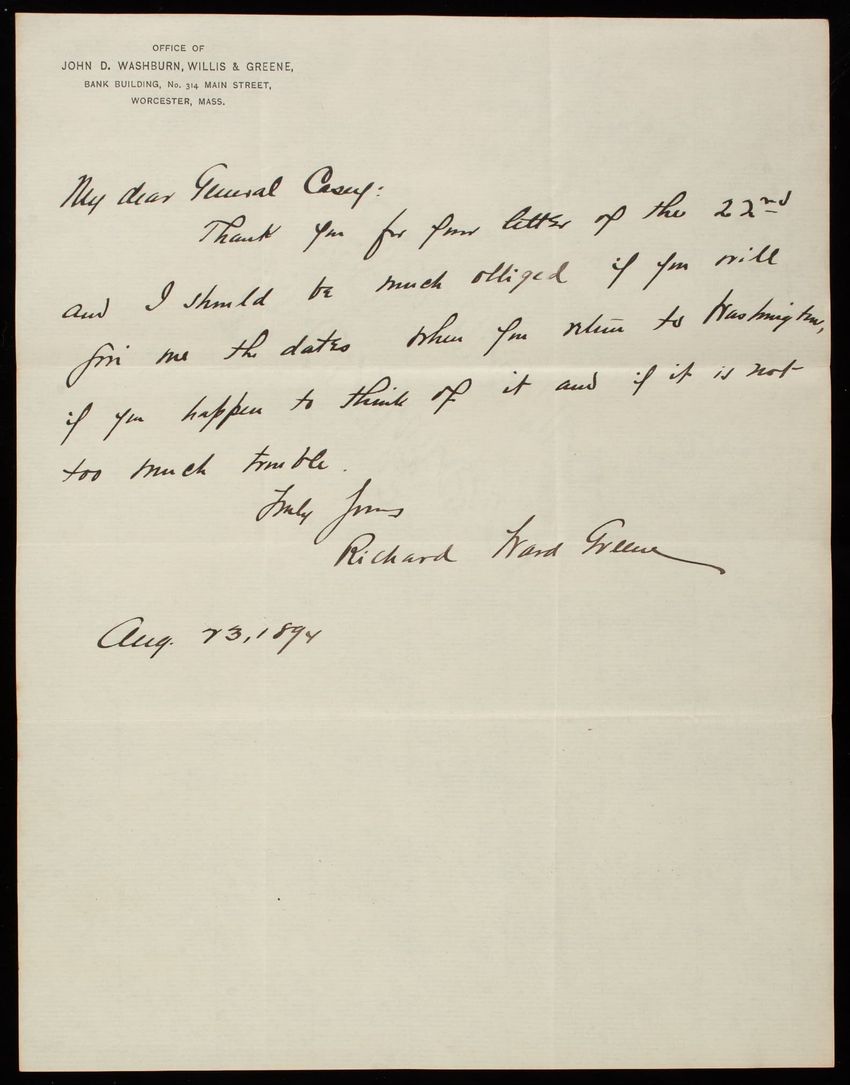 OFFICE OF
JOHN D. WASHBURN, WILLIS & GREENE,
BANK BUILDING, No. 314 MAIN STREET,
WORCESTER, MASS.
My dear General Casey:
Thank you for your letter of the 22nd
and I should be much obliged if you will
give me the dates when you return to Washington,
if you happen to think of it and if it is not
too much trouble.
Truly Yours
Richard Ward Greene
Aug. 23, 1894